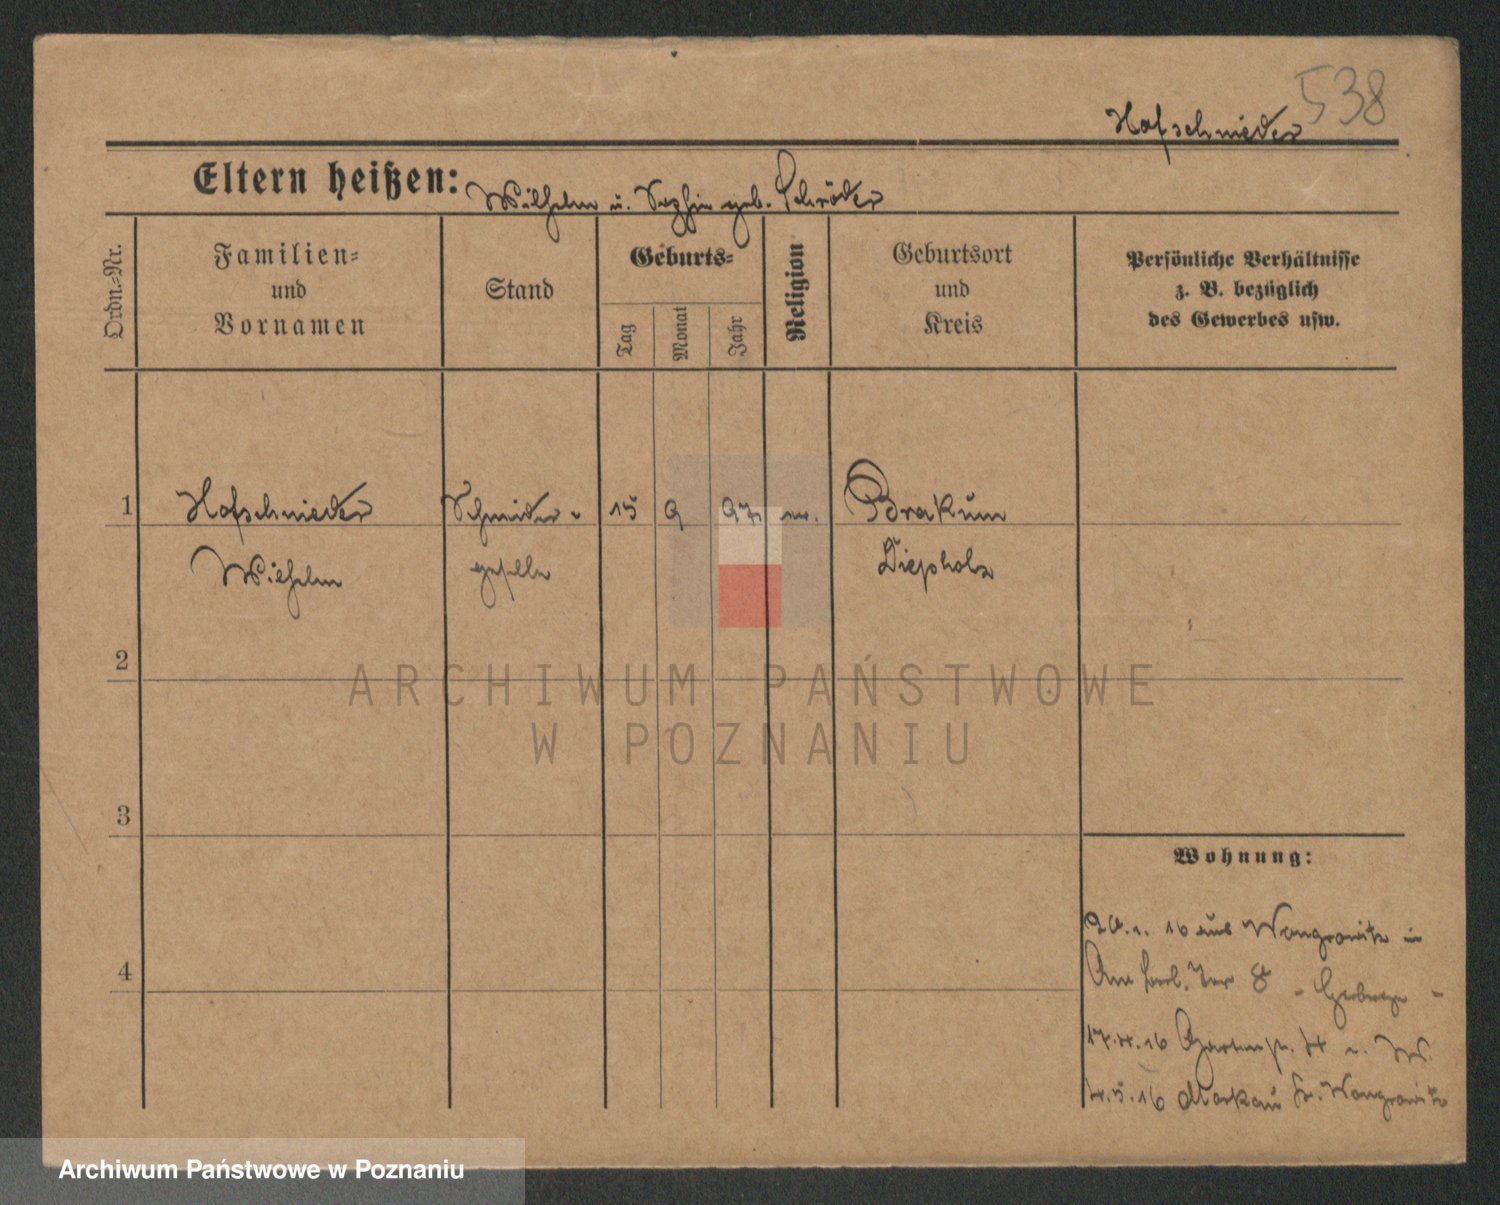 538
Hofschnieder
Eltern heißen: Wilhelm u. Sophie geb. Schröder
Ordn.-Nr.
Familien-
und
Vornamen
Stand
Geburts-
Tag
Monat
Jahr
Religion
Geburtsort
und
Kreis
Persönliche Verhältnisse
z. B. bezüglich
des Gewerbes usw.
1 Hofschnieder Schneider- 15 9 97 ev. Brakum
Wilhelm geselle Diepholz
2
ARCHIWUM PAŃSTWOWE
W POZNANIU
3
Wohnung:
1. 16 aus Wongrowitz in
4
Am Berl. Tor 8 - Herberge -
17.4.16 Gartenstr. 4 W.
4.5.16 Kr. Wongrowitz
Archiwum Państwowe w Poznaniu